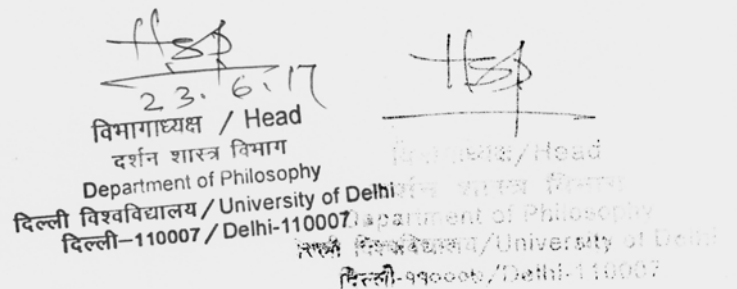 23.6.17
विभागाध्यक्ष / Head
दर्शन शास्त्र विभाग
Department of Philosophy
दिल्ली विश्वविद्यालय / University of Delhi
दिल्ली–110007 / Delhi-110007
/Head
Department of Philosophy
/University of Delhi
दिल्ली-११०००७/Delhi-110007